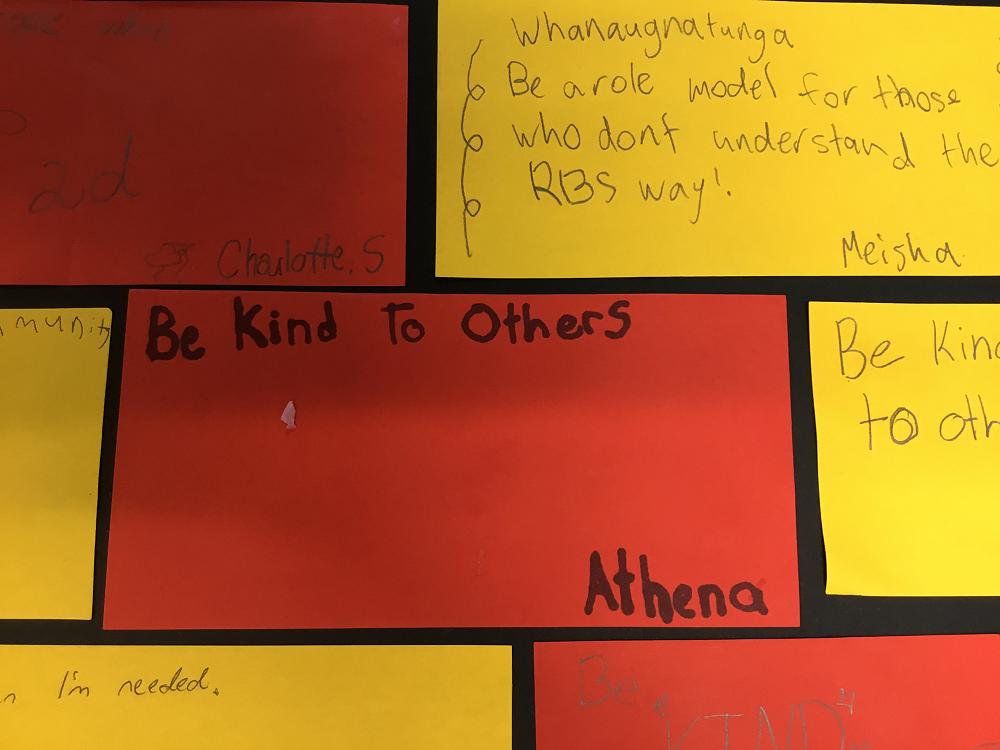 2d
Charlotte. S
Whanaugnatunga
Be a role model for those
who dont understand the
RBS way!.
Meisha
munity
Be Kind To Others
Athena
Be Kind
to oth
I'm needed.
Be
"KIND"